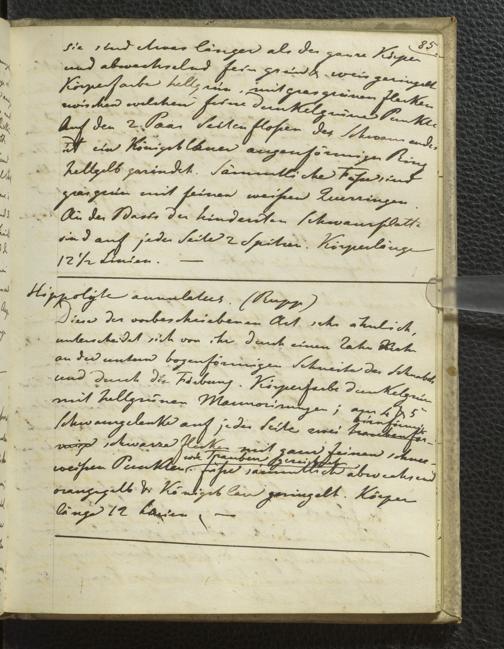 85.
sie sind etwas länger als der ganze Körper
und abwechselnd fein grün & weis geringelt
Körperfarbe hellgrün, mit grasgrünen Flecken
zwischen welchen feine dunkelgrüne Punkte
Auf den 2. Paar Seitenflossen des Schwanzendes
ist ein Königsblauer augenförmiger Ring
hellgelb gerändet. Sämmtliche Füsse sind
grasgrün mit feinen weissen Querringen.
An der Basis der hindersten Schwanzplatte
sind auf jeder Seite 2 Spitzen. Körperlänge
12 1/2 Linien. —
Hippolyte annulatus. (Rupp)
Diese der vorbeschriebenen Art sehr ähnlich,
unterscheidet sich von ihr durch einen Zahn mehr
an der untern bogenförmigen Schneide des Schnabels
und durch die Färbung. Körperfarbe dunkelgrün
mit hellgrünen Marmorirungen; am 4 & 5
Schwanzgelenke auf jeder Seite zwei
schwarze Flecken mit ganz feinen schnee-
weissen Punkten, Füsse sämmtlich abwechselnd
orangegelb & Königsblau geringelt. Körper
länge 12 Linien. —